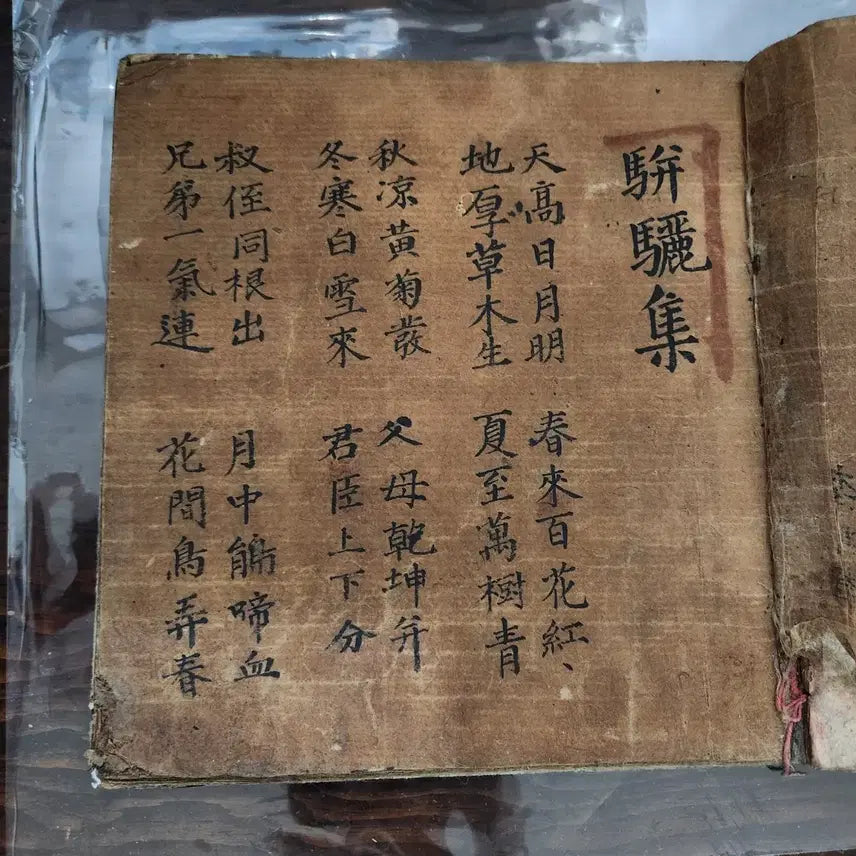 駢驪集
天高日月明
地厚草木生
春來百花紅、
夏至萬樹青
秋凉黃菊發
冬寒白雪來
父母乾坤幷
君臣上下分
叔侄同根出
兄弟一氣連
月中鵑啼血
花間鳥弄春